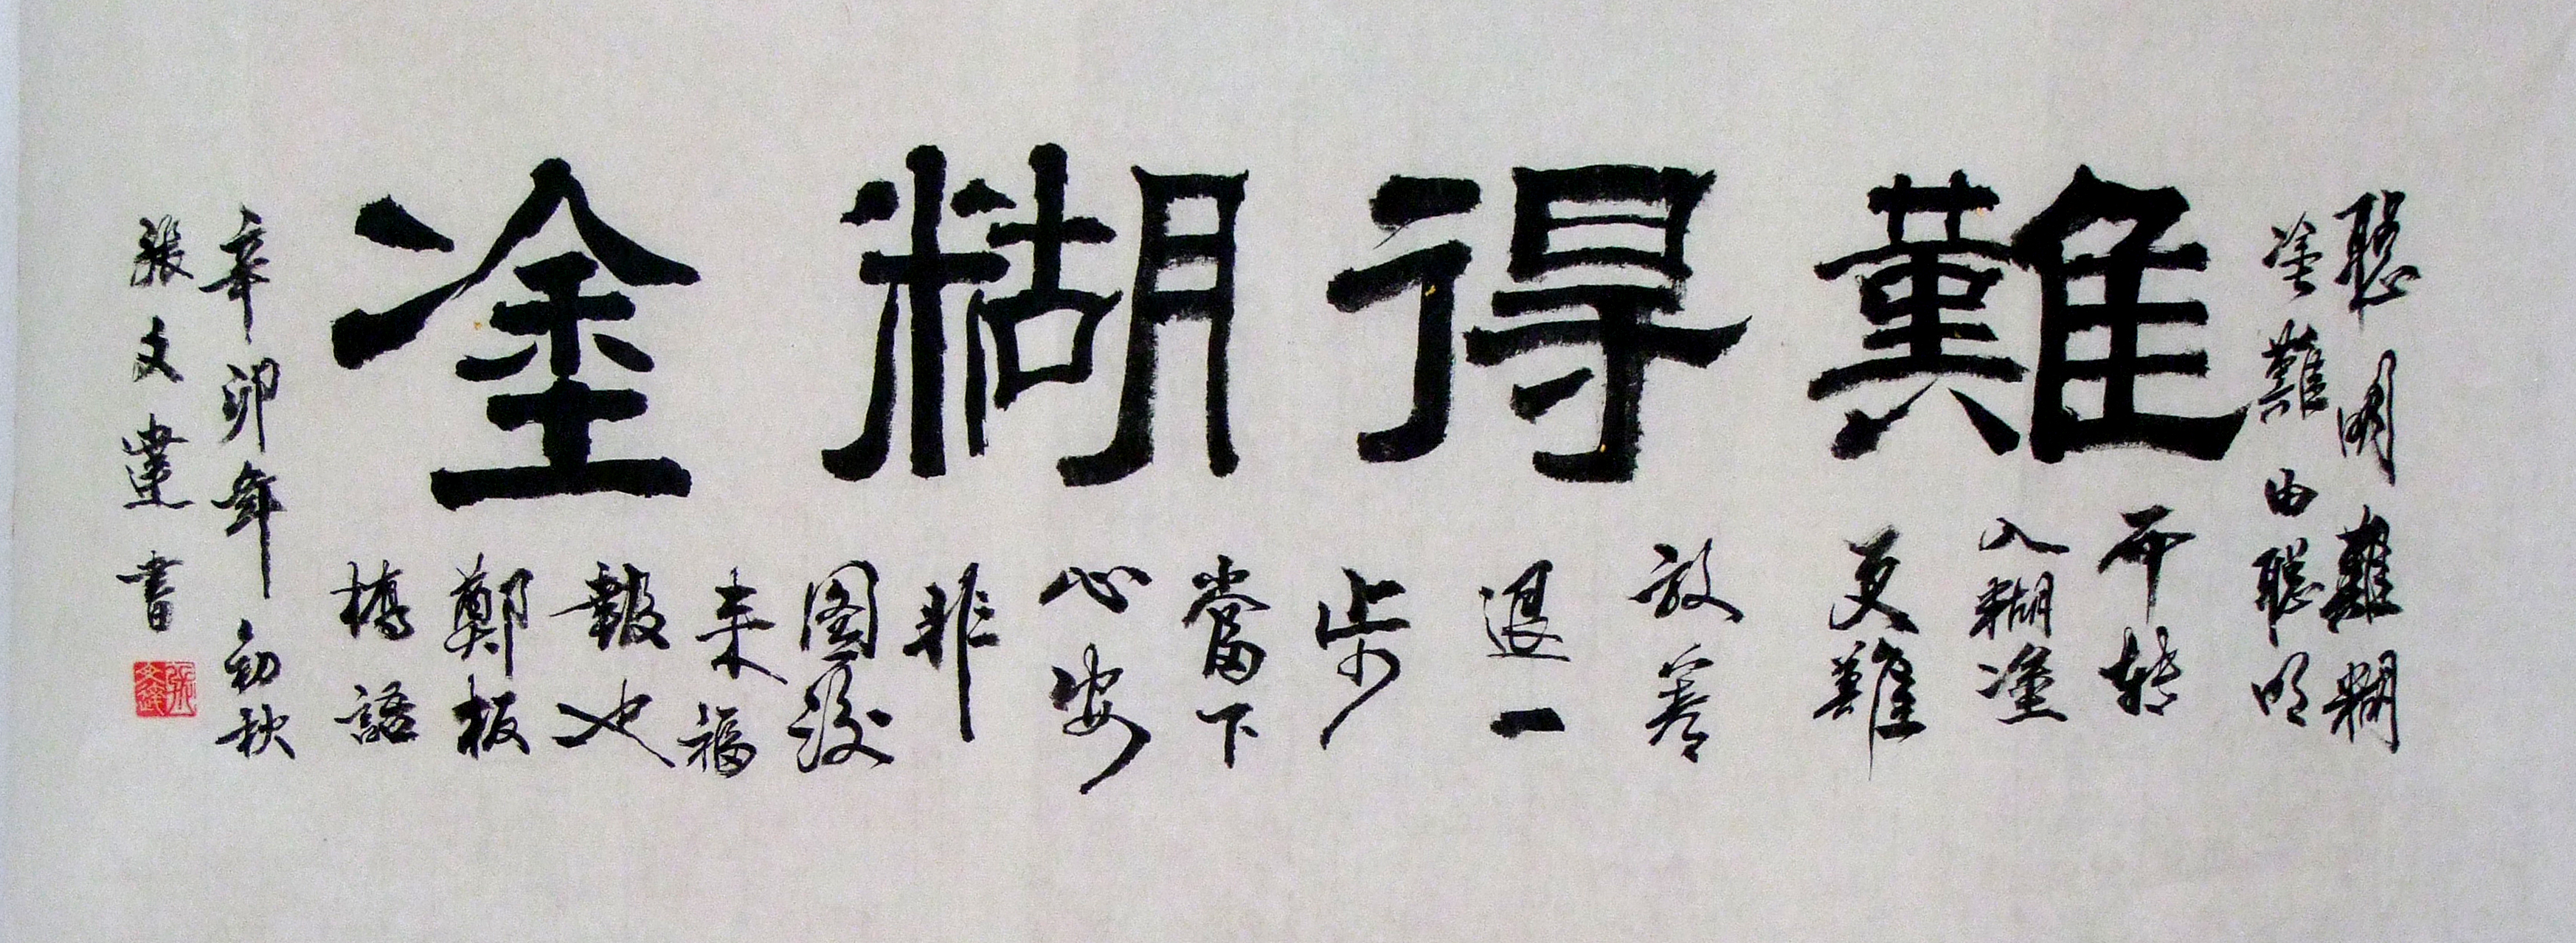 難得糊塗
聰明難糊
塗難由聰明
而转
入糊塗
更難
放着
退一
步
當下
心安
非
图後
来福
報也
鄭板
橋語
辛卯年初秋
張文達書
張文達